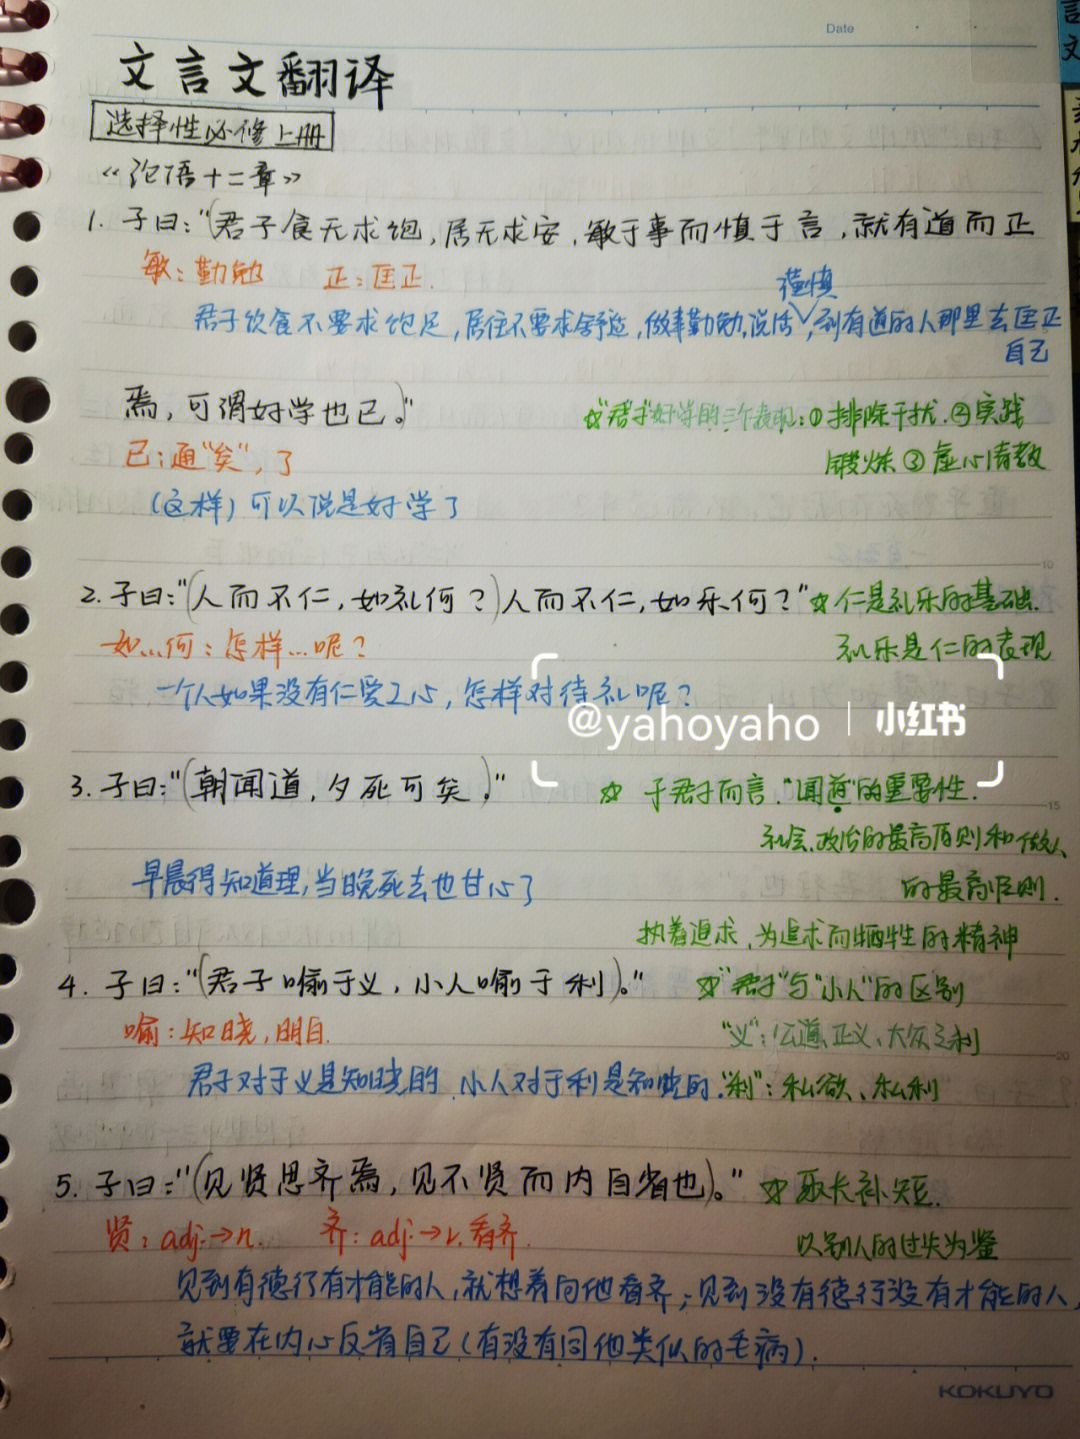 Date
文言文翻译
选择性必修上册
《论语十二章》
1. 子曰:"(君子食无求饱,居无求安,敏于事而慎于言,就有道而正
敏:勤勉 正:匡正.
谨慎
君子饮食不要求饱足,居住不要求舒适,做事勤勉,说话,到有道的人那里去匡正
自己
焉,可谓好学也已)。"
☆"君子"好学的三个表现:①排除干扰.②实践
已:通"矣",了
锻炼③虚心请教
(这样)可以说是好学了
10
2. 子曰:"(人而不仁,如礼何?)人而不仁,如乐何?" ☆仁是礼乐的基础.
如...何:怎样...呢?
礼乐是仁的表现
一个人如果没有仁爱之心,怎样对待礼呢?
@yahoyaho | 小红书
3. 子曰:"(朝闻道,夕死可矣)。"
☆ 于君子而言,"闻道"的重要性.
15
社会、政治的最高原则和做人
早晨得知道理,当晚死去也甘心了
的最高准则.
执着追求,为追求而牺牲的精神
4. 子曰:"(君子喻于义,小人喻于利)。" ☆"君子"与"小人"的区别
喻:知晓,明白.
"义":公道、正义、大众之利
20
君子对于义是知晓的,小人对于利是知晓的.
"利":私欲、私利
5. 子曰:"(见贤思齐焉,见不贤而内自省也)。" ☆取长补短.
贤:adj.→n. 齐:adj.→v.看齐.
以别人的过失为鉴
见到有德行有才能的人,就想着向他看齐;见到没有德行没有才能的人,
就要在内心反省自己(有没有同他类似的毛病).
KOKUYO